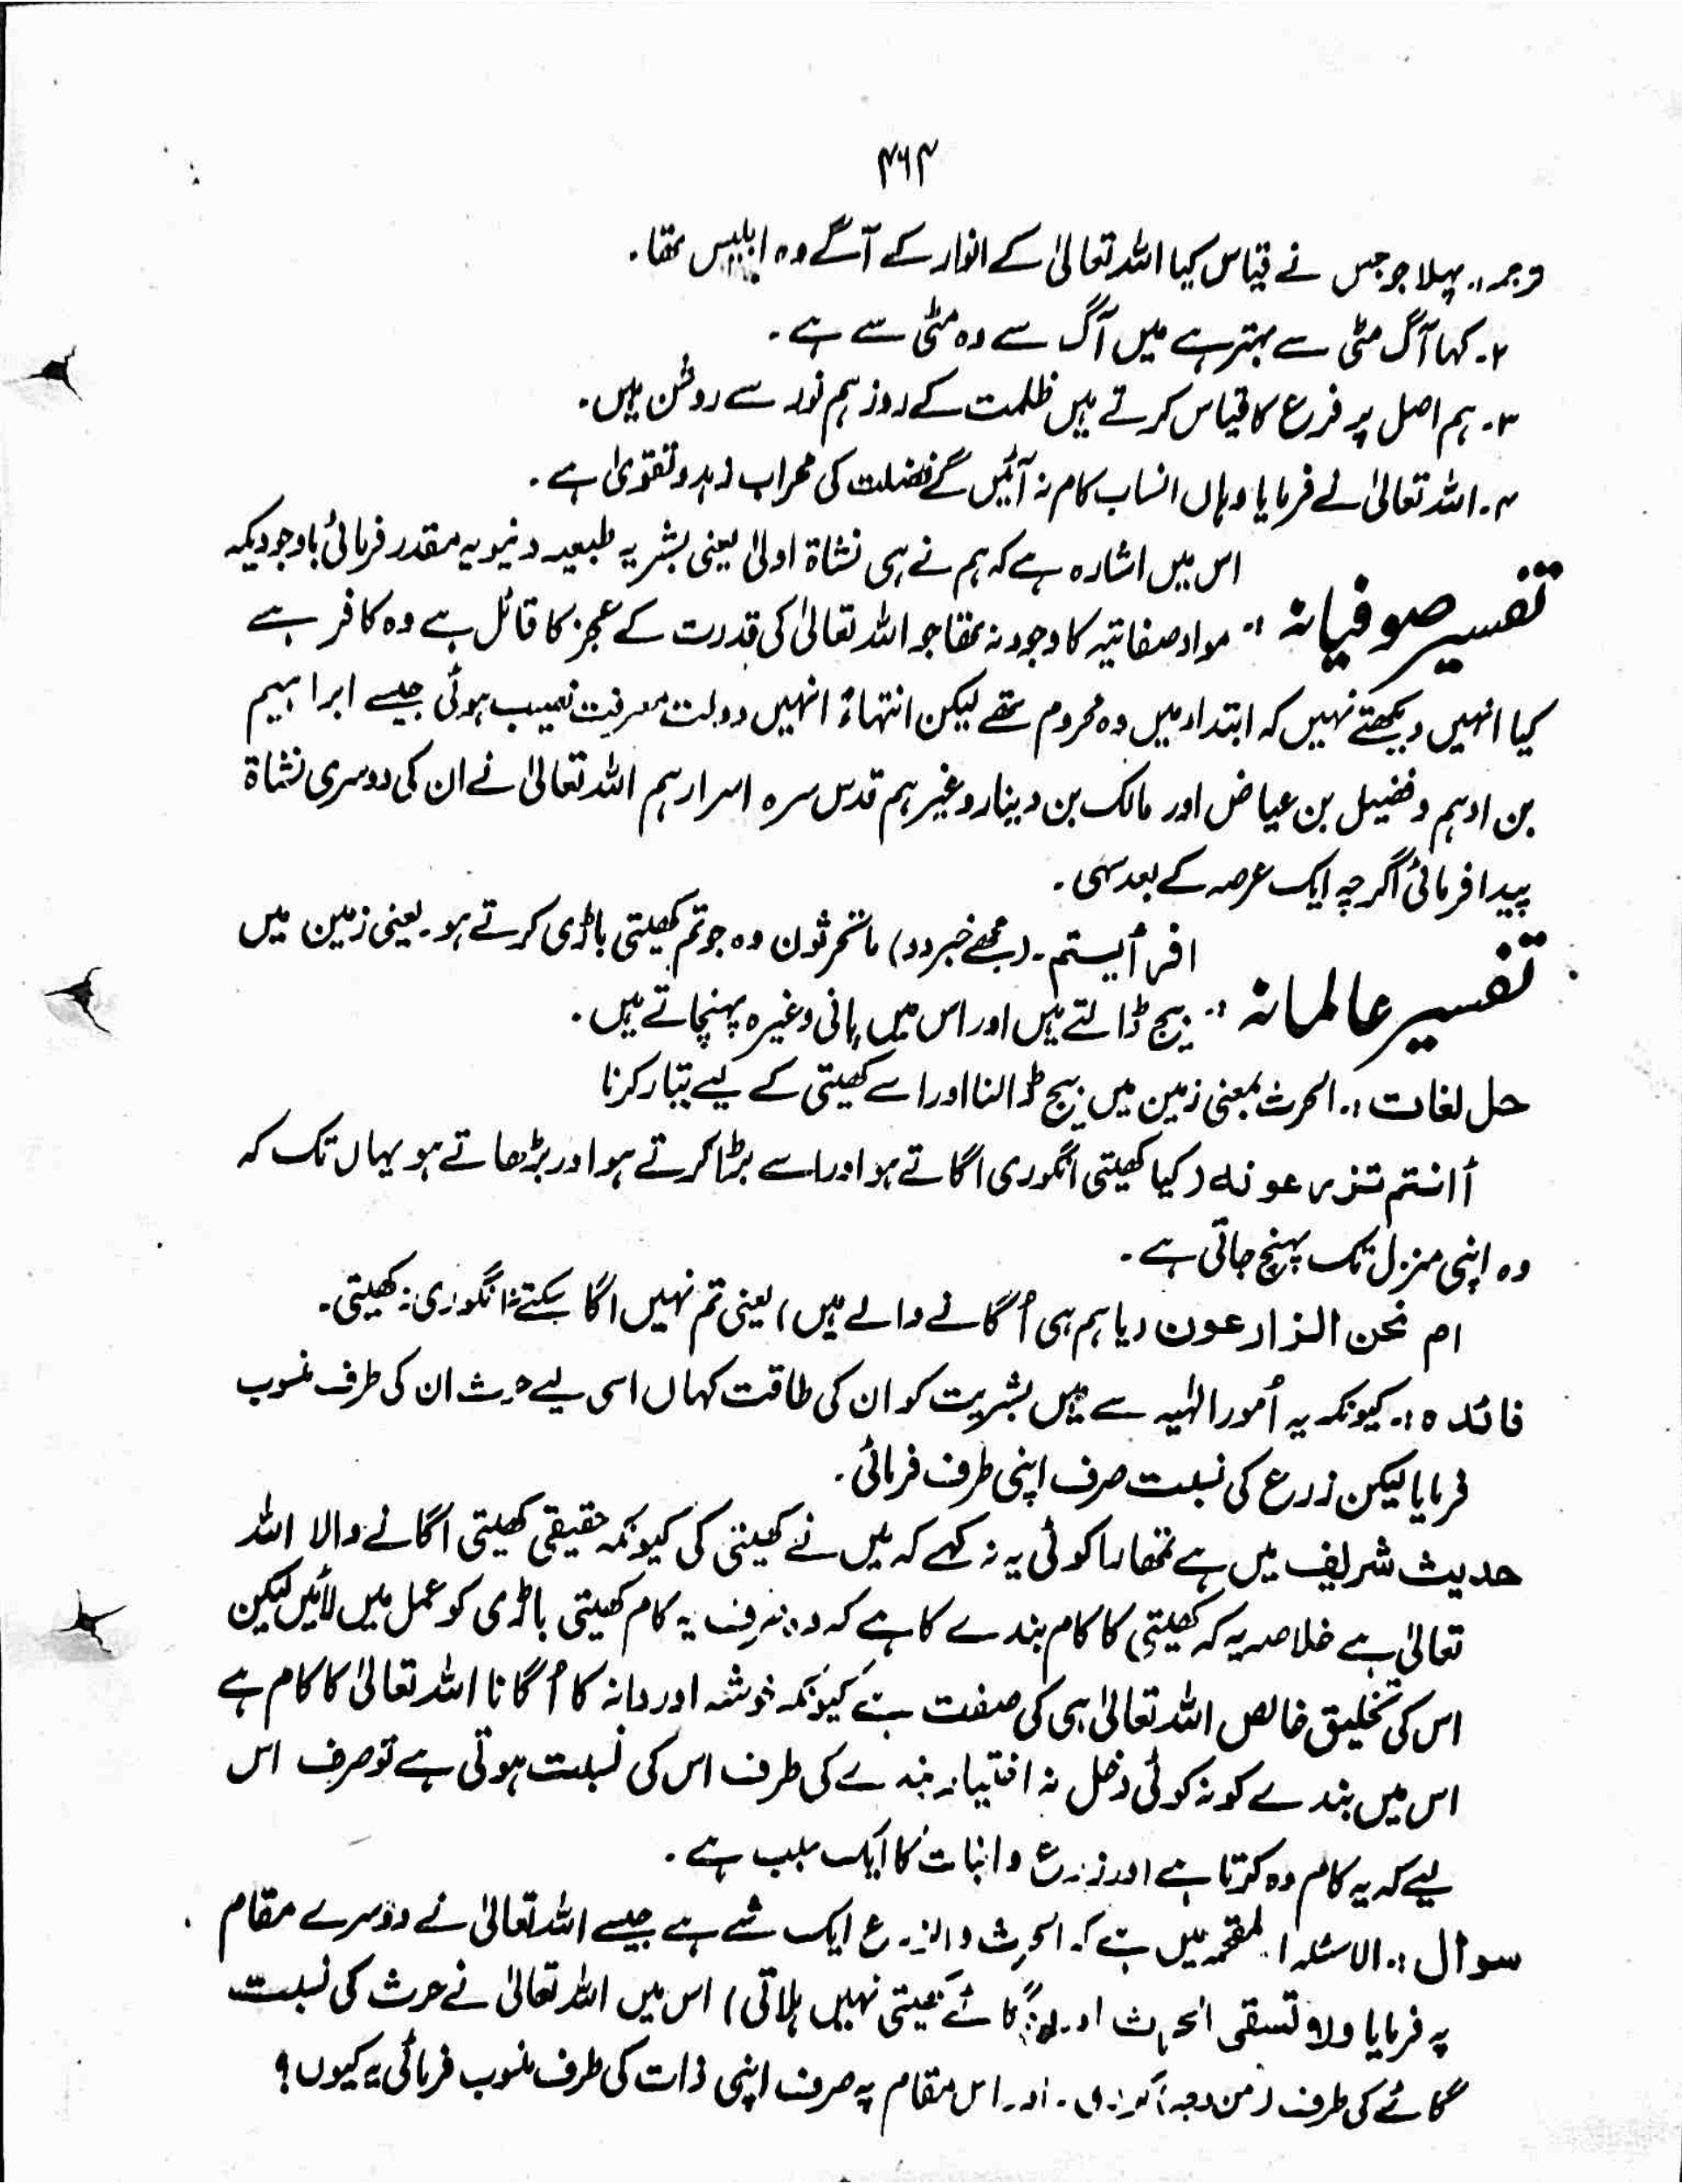 ۴۶۴
ترجمہ:۔ پہلا جو جس نے قیاس کیا اللہ تعالیٰ کے انوار کے آگے وہ ابلیس تھا۔
۲۔ کہا آگ مٹی سے بہتر ہے میں آگ سے وہ مٹی سے ہے۔
۳۔ ہم اصل پر فرع کا قیاس کرتے ہیں ظلمت کے روز ہم نور سے روشن ہیں۔
۴۔ اللہ تعالیٰ نے فرمایا وہاں انساب کام نہ آئیں گے فضیلت کی محراب زہد و تقویٰ ہے۔
اس میں اشارہ ہے کہ ہم نے ہی نشاۃ اولیٰ یعنی بشریہ طبعیہ دنیویہ مقدر فرمائی باوجودیکہ
تفسیر صوفیانہ :۔ مواد صفاتیہ کا وجود نہ تھا جو اللہ تعالیٰ کی قدرت کے عجز کا قائل ہے وہ کافر ہے
کیا انہیں دیکھتے نہیں کہ ابتداء میں وہ محروم تھے لیکن انتہاءً انہیں دولت معرفت نصیب ہوئی جیسے ابراہیم
بن ادہم و فضیل بن عیاض اور مالک بن دینار وغیرہم قدس سرہ اسرارہم اللہ تعالیٰ نے ان کی دوسری نشاۃ
پیدا فرمائی اگرچہ ایک عرصہ کے بعد سہی۔
افرأیتم۔ (مجھے خبر دو) ماتحرثون وہ جو تم کھیتی باڑی کرتے ہو۔ یعنی زمین میں
تفسیر عالمانہ :۔ بیج ڈالتے ہیں اور اس میں پانی وغیرہ پہنچاتے ہیں۔
حل لغات :۔ الحرث بمعنی زمین میں بیج ڈالنا اور اسے کھیتی کے لیے تیار کرنا
أانتم تزرعونہ (کیا کھیتی انگوری اگاتے ہو اور اسے بڑا کرتے ہو اور بڑھاتے ہو یہاں تک کہ
وہ اپنی منزل تک پہنچ جاتی ہے۔
ام نحن الزارعون (یا ہم ہی اُگانے والے ہیں) یعنی تم نہیں اگا سکتے نہ انگوری نہ کھیتی۔
فائدہ :۔ کیونکہ یہ اُمور الٰہیہ سے ہیں بشریت کو ان کی طاقت کہاں اسی لیے حرث ان کی طرف منسوب
فرمایا لیکن زرع کی نسبت صرف اپنی طرف فرمائی۔
حدیث شریف میں ہے تمھارا کوئی یہ نہ کہے کہ میں نے کھیتی کی کیونکہ حقیقی کھیتی اگانے والا اللہ
تعالیٰ ہے خلاصہ یہ کہ کھیتی کا کام بندے کا ہے کہ وہ صرف یہ کام کھیتی باڑی کو عمل میں لائیں لیکن
اس کی تخلیق خالص اللہ تعالیٰ ہی کی صفت ہے کیونکہ خوشہ اور دانہ کا اُگانا اللہ تعالیٰ کا کام ہے
اس میں بندے کو نہ کوئی دخل نہ اختیار بندے کی طرف اس کی نسبت ہوتی ہے تو صرف اس
لیے کہ یہ کام وہ کرتا ہے اور زرع و انبات کا ایک سبب ہے۔
سوال :۔ الاسئلہ المقحمہ میں ہے کہ الحرث والزرع ایک شے ہے جیسے اللہ تعالیٰ نے دوسرے مقام
پہ فرمایا ولا تسقی الحرث اور نہ گائے کھیتی نہیں پلاتی) اس میں اللہ تعالیٰ نے حرث کی نسبت
گائے کی طرف (من وجہ) کر دی۔ اور اس مقام پہ صرف اپنی ذات کی طرف منسوب فرمائی یہ کیوں؟